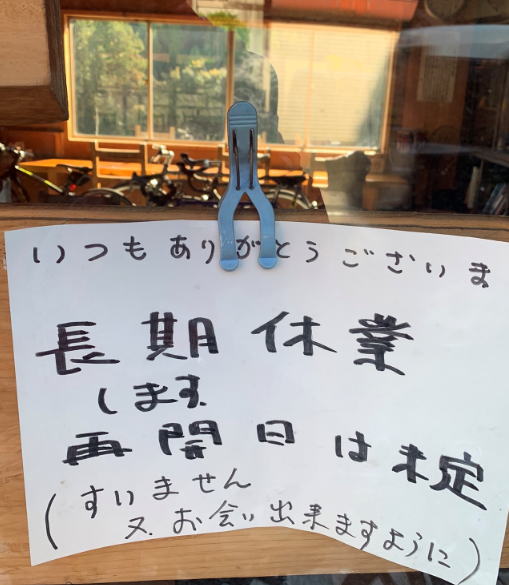 いつもありがとうございま
長期休業
します
再開日は未定
(すいません
又、お会い出来ますように)